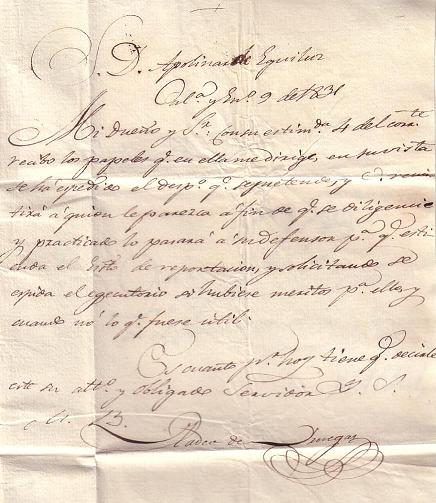 S. D. Apolinar de Eguiluz
Cal.ª y En.º 9 de 1831
Mi Dueño y S.r: Con su estim.da 4 del corr.te
recibo los papeles q.e en ella me dirige, en su vista
se ha espedido el desp.o q.e se pretende, y V. remi
tirá á quien le paresca á fin de q.e se diligencie
y practicado lo pasará á su defensor p.a q.e esti
enda el de reportacion, y solicitando se
espida el egecutorio si hubiese meritos p.a ello, y
cuando nó lo q.e fuese util.
Es cuanto p.r hoy tiene q.e decirle
este su att.o y obligado Servidor Q. S.
M. B.
Tadeo de